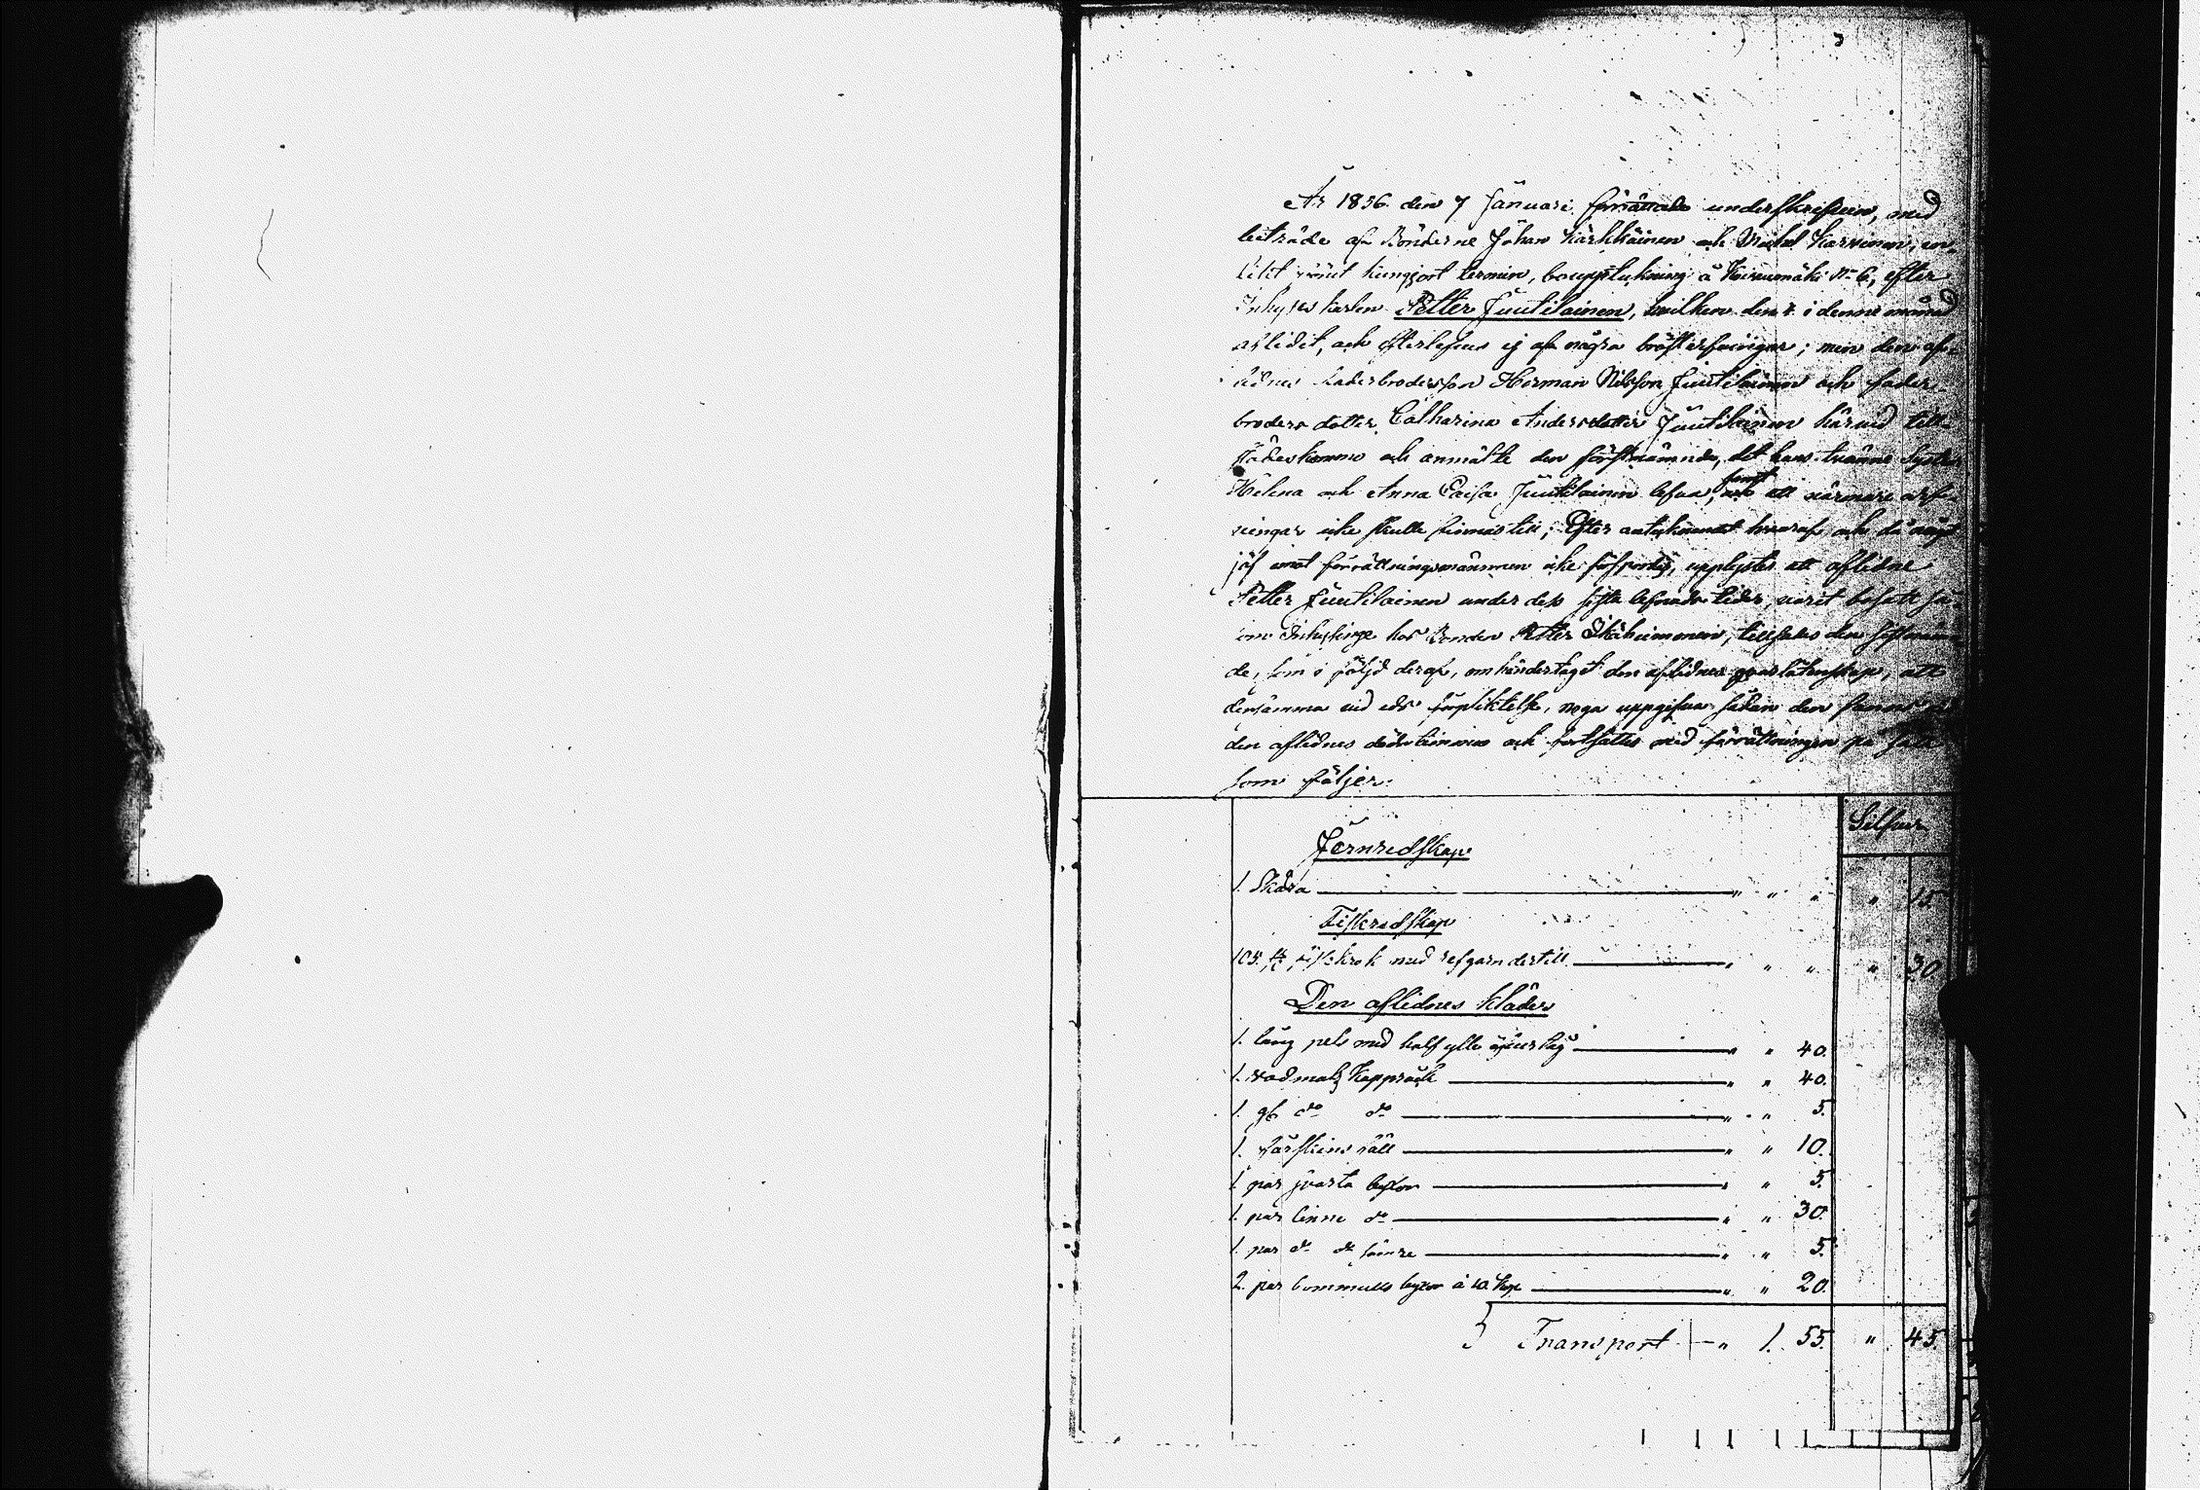 År 1856 den 7 Januari förrättade underskrefven, med
biträde af Bönderne Johan Kärkkäinen och Michel Karvinen,
kungjort termin, bouppteckning å Hirvimäki No 6, efter
Inhyses karlen Petter Juutilainen, hvilken den 4 i denne månad
aflidit, och efterlefves ej af några bröstarfvingar; men den af-
lidnes faderbrodersson Herman Nilsson Juutilainen och fader-
broders dotter Catharina Andersdotter Juutilainen härvid till-
städeskommo och anmälte den förstnämnda, det hans tvänne Syst
Helena och Anna Caisa Juutilainen lefva, samt att närmare arf-
vingar icke skulle finnas till; Efter antecknandet häraf och då något
jäf emot förrättningsmännen icke försports, upplystes att aflidne
Petter Juutilainen under dess sista lefnads tider, varit bosatt så-
som Inhysinge hos Bonden Petter, tillsades den sistnämn
de, som i följd deraf, omhändertagit den aflidnes qvarlåtenskap, att
densamma vid eds förpliktelse, noga uppgifva sådan den fanns vid
den aflidnes dödstimma och fortsattes med förrättningen på sätt
som följer:
Silfver
Jernredskap
1. Skära " " " " 15
Fiskredskap
105. st fiskkrok med refgarn dertill " " " " 30
Den aflidnes kläder
1. lång pels med half ylle " " 40.
1. vadmals Kapprock " " 40.
1. gl do do " " 5.
1. fårskins fäll " " 10.
1. par svarta byxor " " 5.
1. par linne do " " 30.
1. par do do sämre " " 5.
2. par bommulls byxor à 10 Kop " " 20.
Transport " 1. 55. " 45.